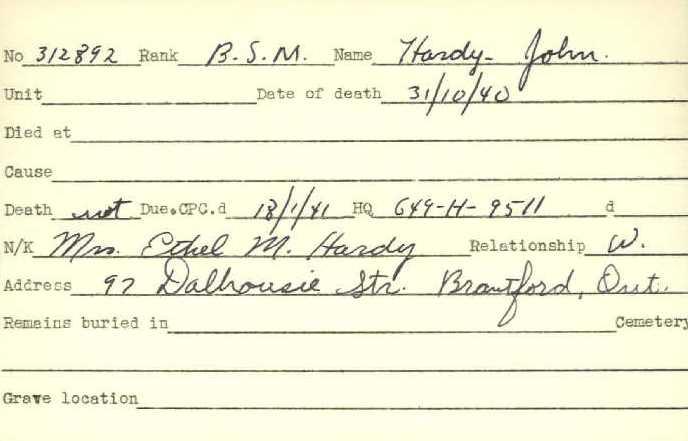 No 312892 Rank B.S.M. Name Hardy - John.
Unit Date of death 31/10/40
Died at
Cause
Death not Due.CPC.d 18/1/41 HQ 649-H-9511 d
N/K Mrs. Ethel M. Hardy Relationship W.
Address 97 Dalhousie Str. Brantford, Ont.
Remains buried in Cemetery
Grave location